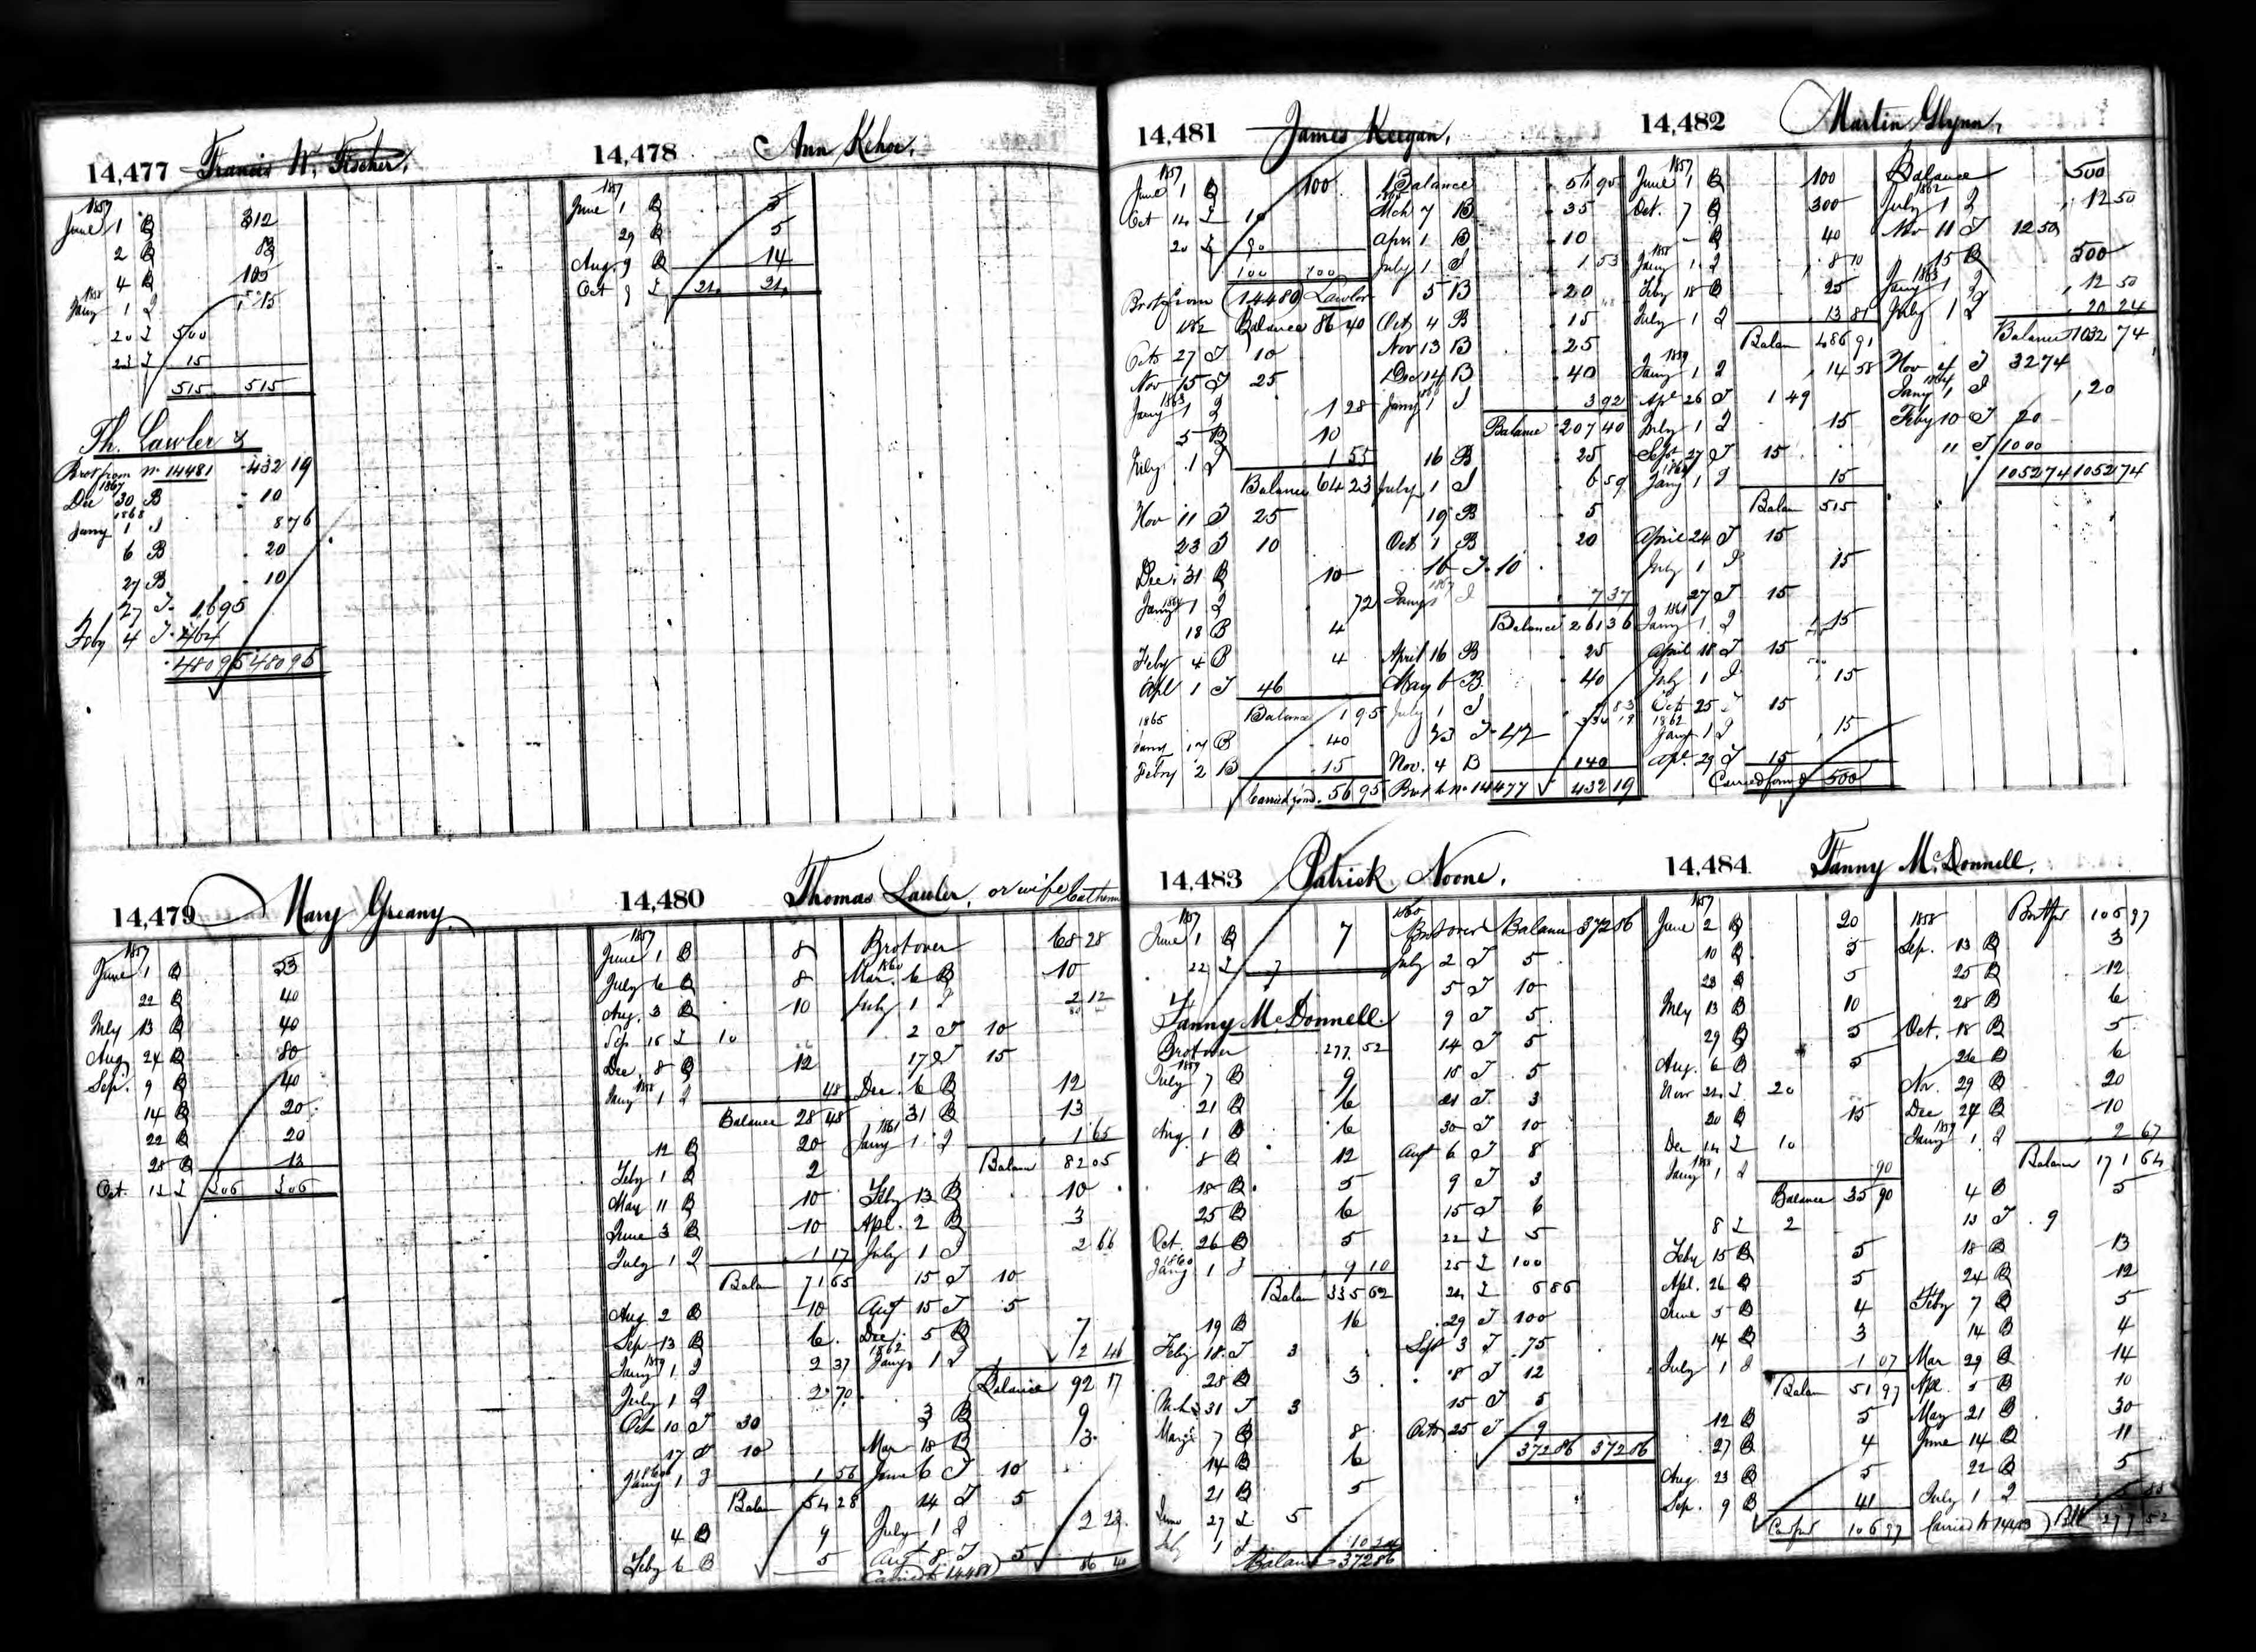 14,477 Francis W. Fischer.
1857
June 1 B 312
2 B 83
4 B 105
1858
Jany 1 I 15
20 I 500
23 I 15
515 515
Th. Lawler &
Brot from No. 14481 432 19
1867
Dec 30 B 10
1868
Jany 1 I 8 76
6 B 20
27 B 10
27 I 16 95
Feby 4 I 464
480 95 480 95
14,478 Ann Kehoe.
1857
June 1 B 5
29 B 5
Aug. 9 B 14
Oct 9 I 24 24
14,479 Mary Greany.
1857
June 1 B 53
22 B 40
July 13 B 40
Aug 24 B 80
Sep. 9 B 40
14 B 20
22 B 20
28 B 13
Oct. 12 I 306 306
14,480 Thomas Lawler, or wife Catherine
1857
June 1 B 8
July 6 B 8
Aug. 3 B 10
Sep. 15 I 10
Dec. 8 B 12
1858
Jany 1 I 48
Balance 28 48
12 B 20
Feby 1 B 2
May 11 B 10
June 3 B 10
July 1 I 1 17
Balan 71 65
Aug 2 B 10
Sep 13 B 6
1859
Jany 1 I 2 37
July 1 I 2 70
Oct 10 I 30
17 I 10
1860
Jany 1 I 1 56
Balan 54 28
4 B 9
Feby 6 B 5
Brot over 68 28
1860
Mar. 6 B 10
July 1 I 2 12
2 I 10
17 I 15
Dec. 6 B 12
31 B 13
1861
Jany 1 I 1 65
Balan 82 05
Feby 13 B 10
Apl. 2 B 3
July 1 I 2 66
15 I 10
Augt 15 I 5
Dec. 5 B 7
1862
Jany 1 I 2 46
Balance 92 17
3 B 9
Mar 18 B 3
June 6 I 10
14 I 5
July 1 I 2 23
Augt 8 I 5
Carried to 14481 86 40
14,481 James Keegan.
1857
June 1 B 100
Oct 14 I 10
20 I 90
100 100
Brot from 14480 Lawler
1862 Balance 86 40
Octo 27 I 10
Nov 15 I 25
1863
Jany 1 I 1 28
5 B 10
July 1 I 1 55
Balance 64 23
Nov 11 I 25
23 I 10
Dec 31 B 10
1864
Jany 1 I 72
18 B 4
Feby 4 B 4
Apl 1 I 46
Balance 1 95
1865
Jany 17 B 40
Febry 2 B 15
Carried forwd. 56 95
Balance 56 95
Mch 7 B 35
April 1 B 10
July 1 I 1 53
5 B 20
Oct 4 B 15
Nov 13 B 25
Dec 14 B 40
Jany 1 I 3 92
Balance 207 40
16 B 25
July 1 I 6 59
19 B 5
Oct 1 B 20
16 I 10
1867
Jany 1 I 7 37
Balance 261 36
April 16 B 25
May 6 B 40
July 1 I 7 83
334 19
23 I 42
Nov. 4 B 140
Brot to No 14477 432 19
14,482 Martin Glynn.
1857
June 1 B 100
Oct. 7 B 300
B 40
1858
Jany 1 I 8 10
Feby 18 B 25
July 1 I 13 81
Balan 486 91
1859
Jany 1 I 14 58
Apl 26 I 1 49
July 1 I 15
Sept 27 I 15
1860
Jany 1 I 15
Balan 515
April 24 I 15
July 1 I 15
27 I 15
1861
Jany 1 I 15
April 18 I 15
July 1 I 15
Oct 25 I 15
1862
Jany 1 I 15
Apl. 29 I 15
Carried forwd 500
Balance 500
1862
July 1 I 12 50
Nov 11 I 12 50
15 B 500
1863
Jany 1 I 12 50
July 1 I 20 24
Balance 1032 74
Nov 4 I 32 74
1864
Jany 1 I 20
Feby 10 I 20
11 I 1000
1052 74 1052 74
14,483 Patrick Noone.
1857
June 1 B 7
22 I 7
Fanny McDonnell.
Brot over 277.52
1859
July 7 B 9
21 B 6
Aug. 1 B 6
8 B 12
18 B 5
25 B 6
Oct. 26 B 5
1860
Jany 1 I 9 10
Balan 335 62
19 B 16
Feby 18 I 3
28 B 3
Mch 31 I 3
May 7 B 8
14 B 6
21 B 5
June 27 I 5
July 1 I 10 24
Balance 372 86
1860
Brot over Balance 372 86
July 2 I 5
5 I 10
9 I 5
14 I 5
18 I 5
21 I 3
30 I 10
Augt 6 I 8
9 I 3
15 I 6
22 I 5
25 I 100
24 I 6 86
29 I 100
Sept 3 I 75
8 I 12
15 I 5
Octo 25 I 9
372 86 372 86
14,484 Fanny McDonnell.
1857
June 2 B 20
10 B 5
23 B 5
July 13 B 10
29 B 5
Aug. 6 B 5
Nov 24 I 20
20 B 15
Dec 14 I 10
1858
Jany 1 I 90
Balance 35 90
8 I 2
Feby 15 B 5
Apl. 26 B 5
June 5 B 4
14 B 3
July 1 I 1 07
Balan 51 97
12 B 5
27 B 4
Aug. 23 B 5
Sep. 9 B 41
Car fwd 106 97
1858 Brot fwd 106 97
Sep. 13 B 3
25 B 12
28 B 6
Oct. 18 B 5
26 B 6
Nov. 29 B 20
Dec 24 B 10
1859
Jany 1 I 2 67
Balance 171 64
4 B 5
13 I 9
18 B 13
24 B 12
Feby 7 B 5
14 B 4
Mar 29 B 14
Apl. 5 B 10
May 21 B 30
June 14 B 11
22 B 5
July 1 I 5 88
Carried to 14483 277 52